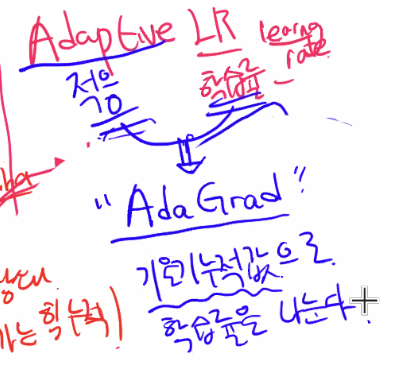 Adaptive LR learning rate
적응 학습률
"AdaGrad"
기울기누적값으로
학습률을 나눈다.
가는 힉누적)